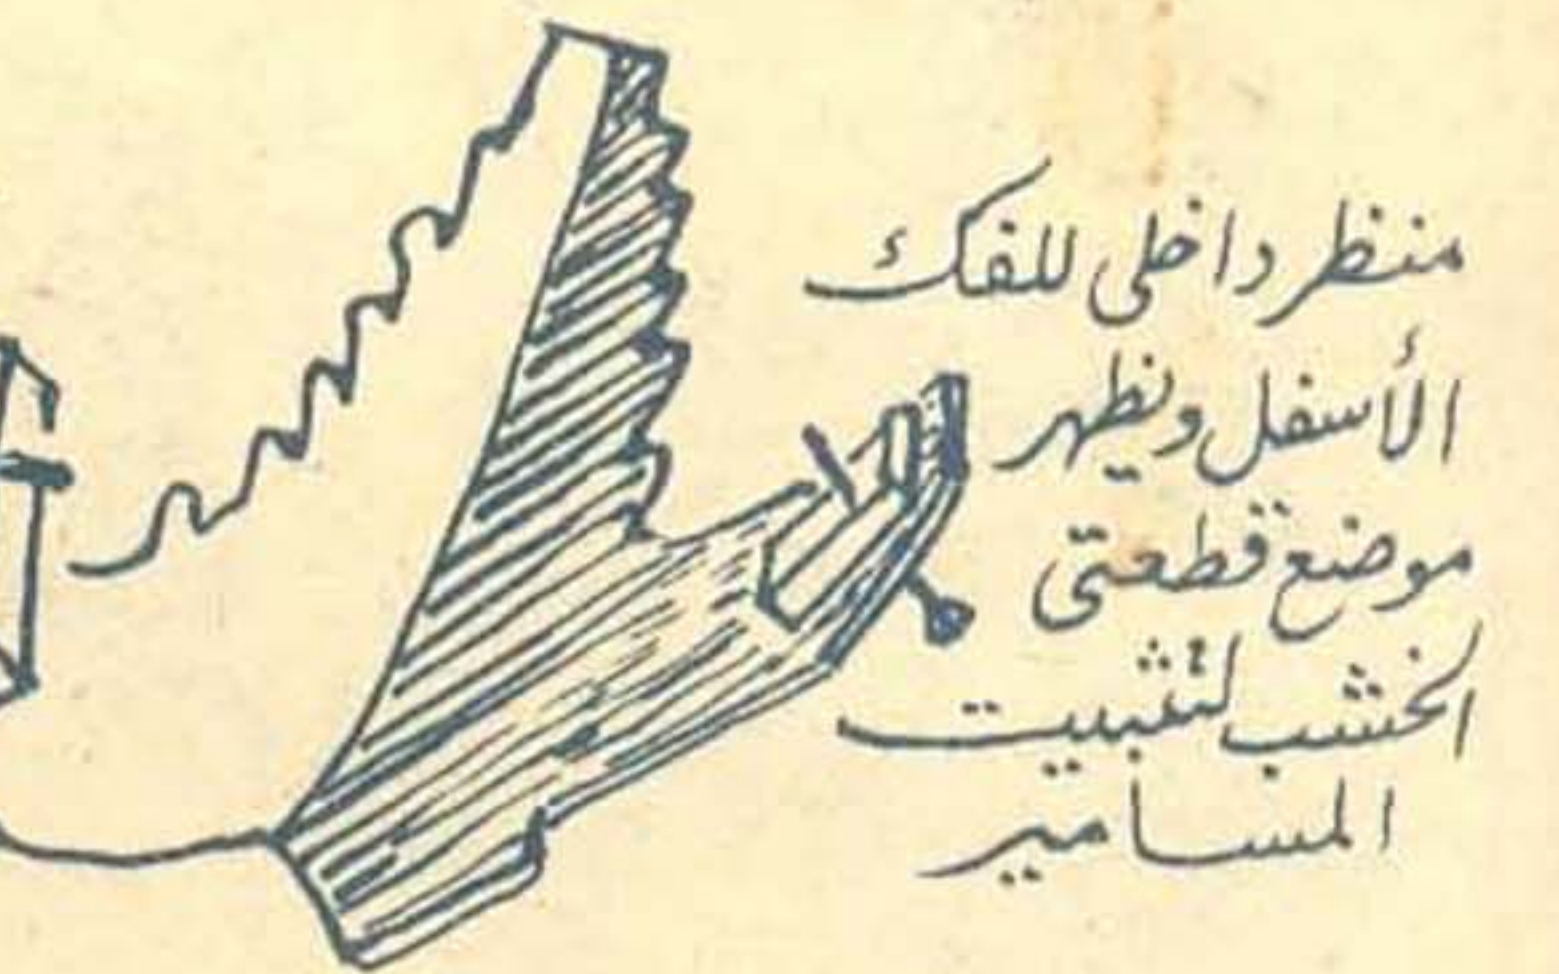 منظر داخلى للفك
الأسفل ونظهر
موضع قطعتى
الخشب لتثبيت
المسامير